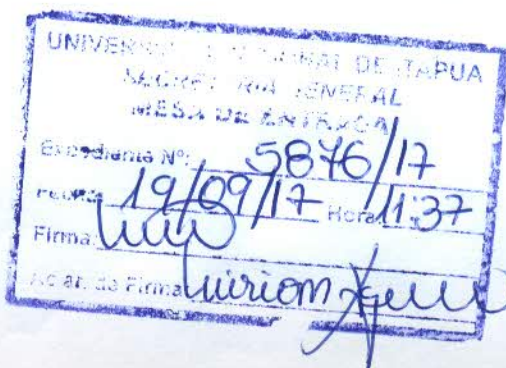 UNIVERSIDAD NACIONAL DE ITAPUA
SECRETARIA GENERAL
MESA DE ENTRADA
Expediente Nº: 5876/17
Fecha: 19/09/17 Hora: 11:37
Firma:
Aclar. de Firma: